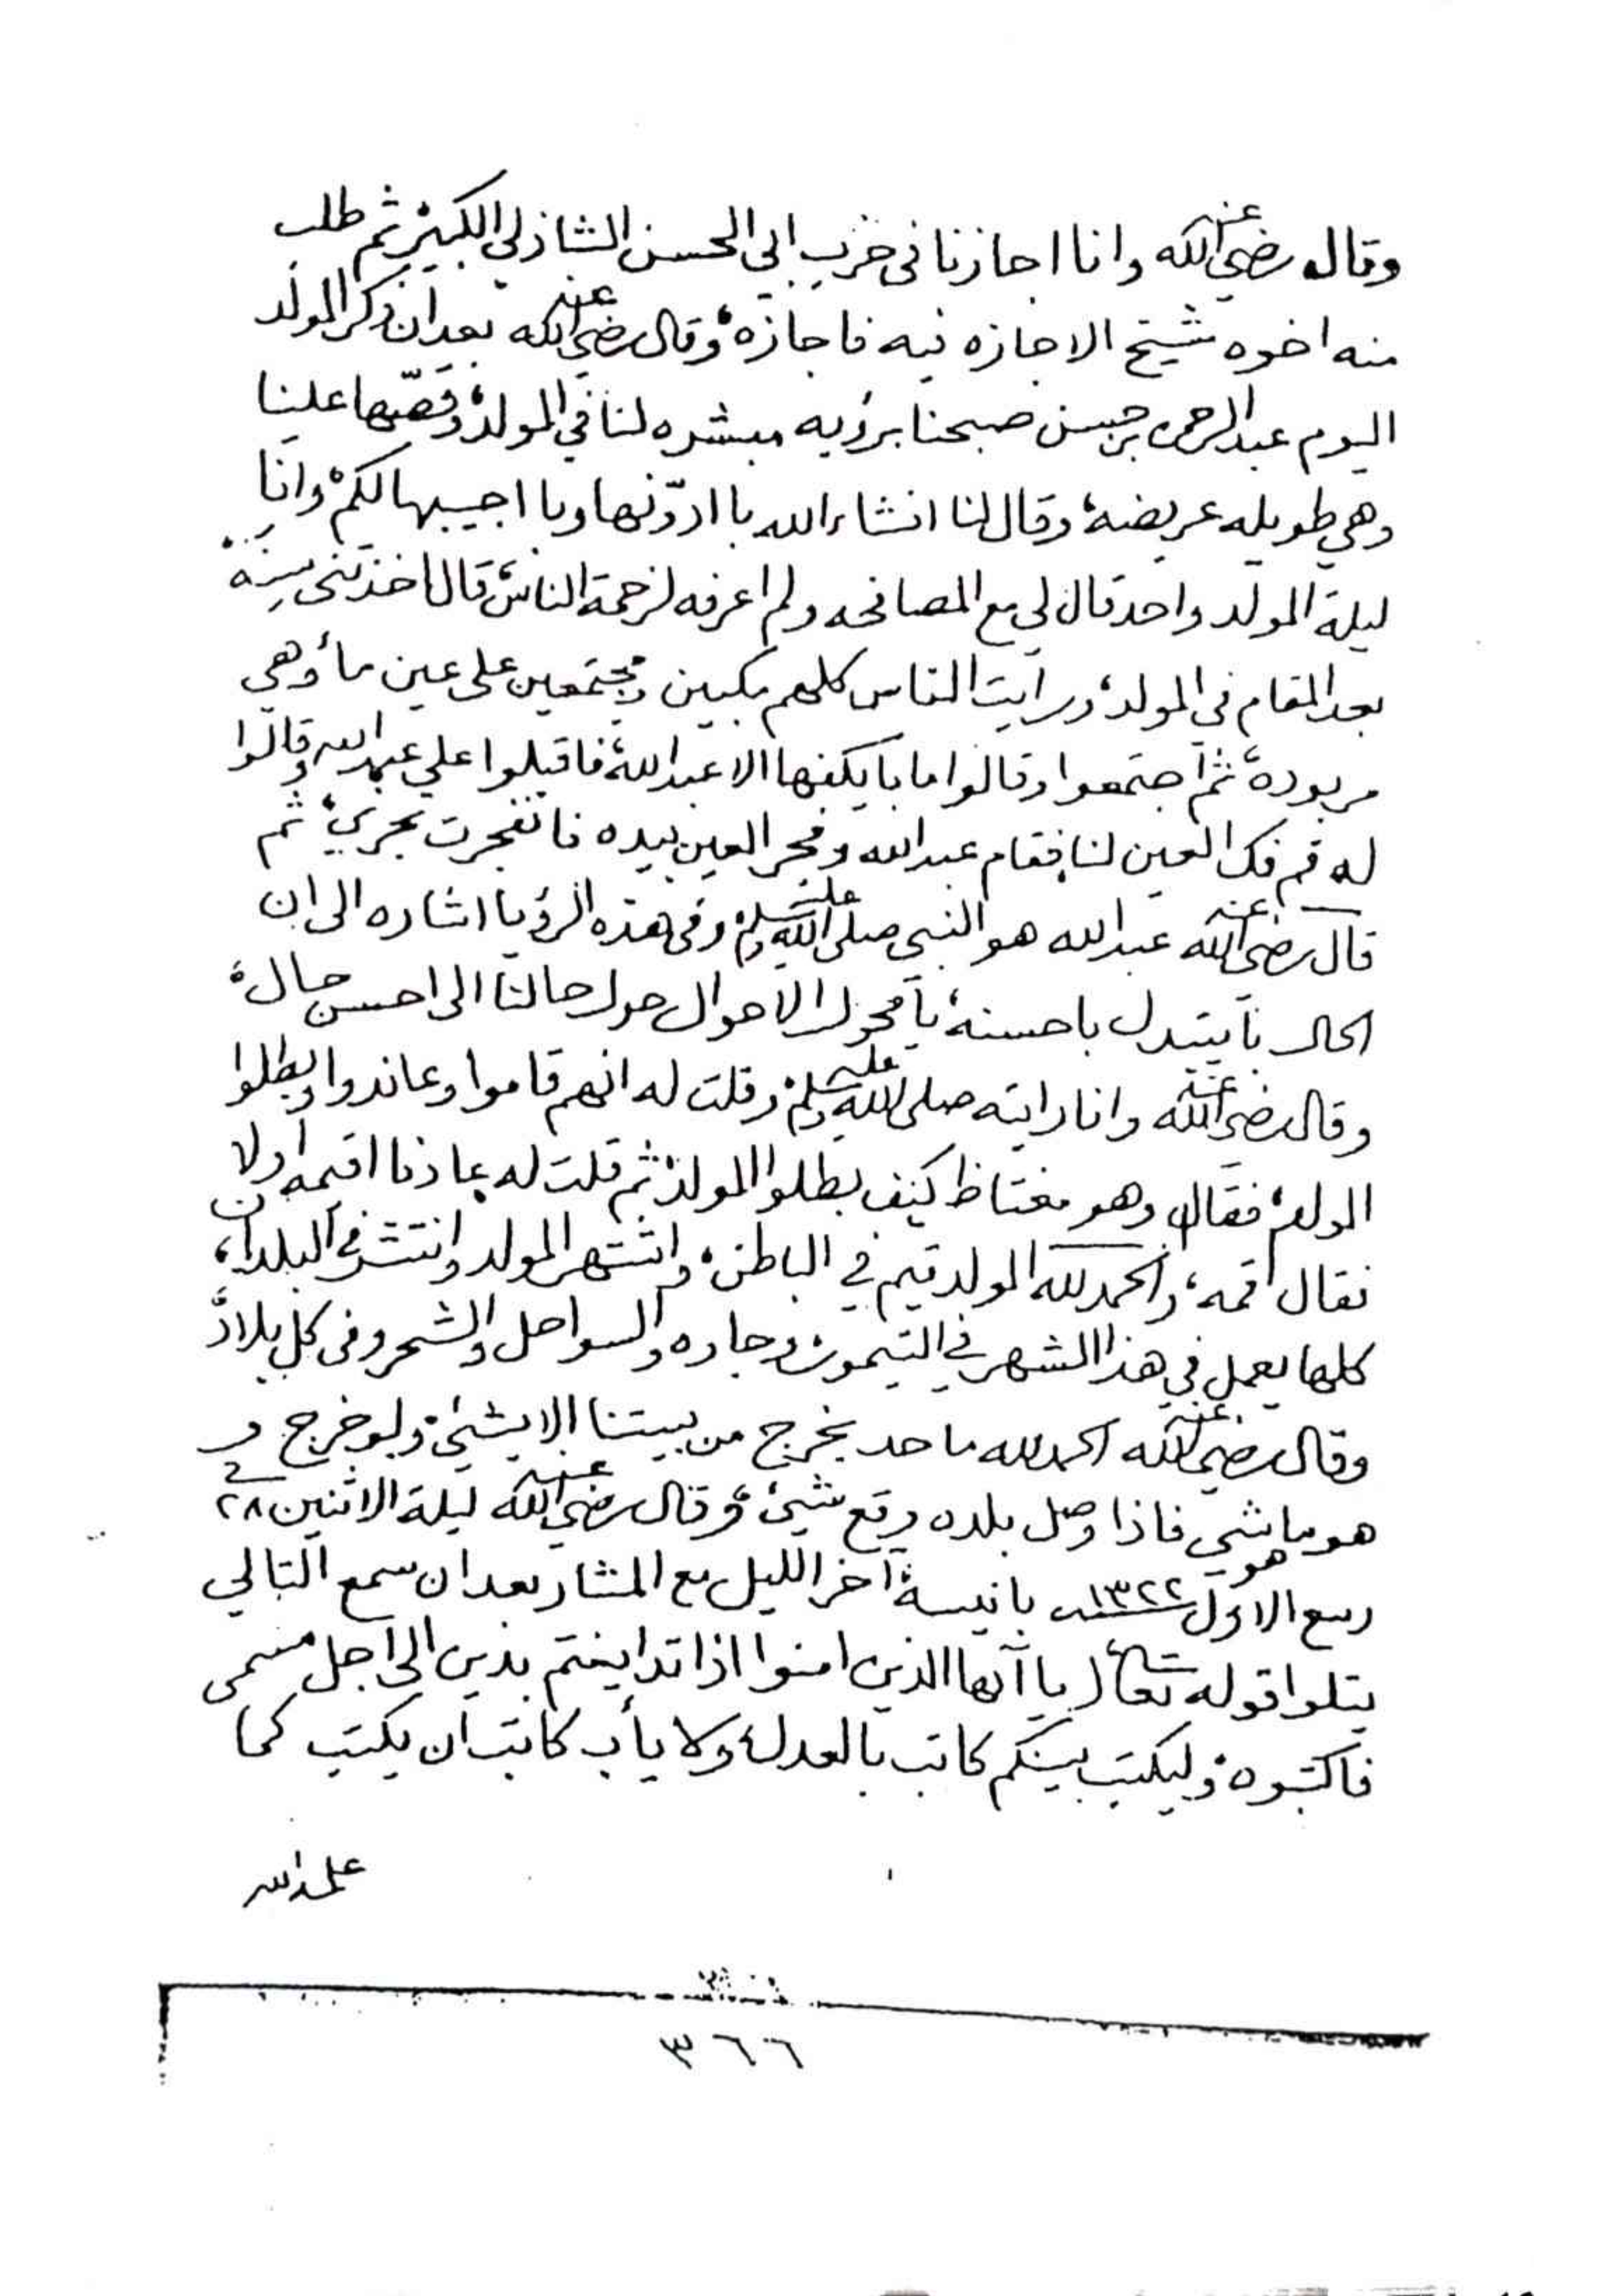 وقال رضي الله عنه وانا اجازنا في حزب ابي الحسن الشاذلي الكبير ثم طلب
منه اخوه شيخ الاجازه فيه فاجازه، وقال رضي الله عنه بعد ان ذكر المولد
اليوم عبدالرحمن بن حسن صبحنا برؤيه مبشره لنا في المولد، وقصّها علينا
وهي طويله عريضه، وقال لنا انشاءالله با ادوّنها وبا اجيبها لكم، وانا
ليلة المولد واحد قال لي مع المصافحه ولم اعرفه لزحمة الناس، قال اخذتني سِنَه
بعد المقام في المولد، ورايت الناس كلهم مكبين ومجتمعين على عين ماء وهي
مربوده، ثم اجتمعوا وقالوا ما با يكفها الا عبدالله، فاقبلوا على عبدالله وقالوا
له قم فك العين لنا، فقام عبدالله وفجر العين بيده فانفجرت بجري، ثم
قال رضي الله عنه عبدالله هو النبي صلى الله عليه وسلم، وفي هذه الرؤيا اشاره الى ان
الحال بايتبدل باحسنه، يا محول الاحوال حول حالنا الى احسن حال،
وقال رضي الله عنه وانا رايته صلى الله عليه وسلم، وقلت له انهم قاموا وعاندوا وبطلوا
المولد، فقال وهو مغتاظ كيف بطلوا المولد، ثم قلت له عاذنا اقيمه اولا
فقال اقمه، والحمدلله المولد قيم في الباطن، واشتهر المولد وانتشر في البلدان،
كلها يعمل في هذا الشهر في التيمور وجاوه والسواحل والشحر وفي كل بلاد،
وقال رضي الله عنه الحمدلله ما حد يخرج من بيتنا الا بشيء، ولو خرج و
هو ماشي فاذا وصل بلده وقع شيء، وقال رضي الله عنه ليلة الاثنين ٢٨
ربيع الاول سنة ١٣٢٢ هو بانيسة آخر الليل مع المشار بعد ان سمع التالي
يتلوا قوله تعالى يا آيها الذين امنوا اذا تداينتم بدين الى اجل مسمى
فاكتبوه، وليكتب بينكم كاتب بالعدل، ولا يأب كاتب ان يكتب كما
علمه الله
٣٦٦